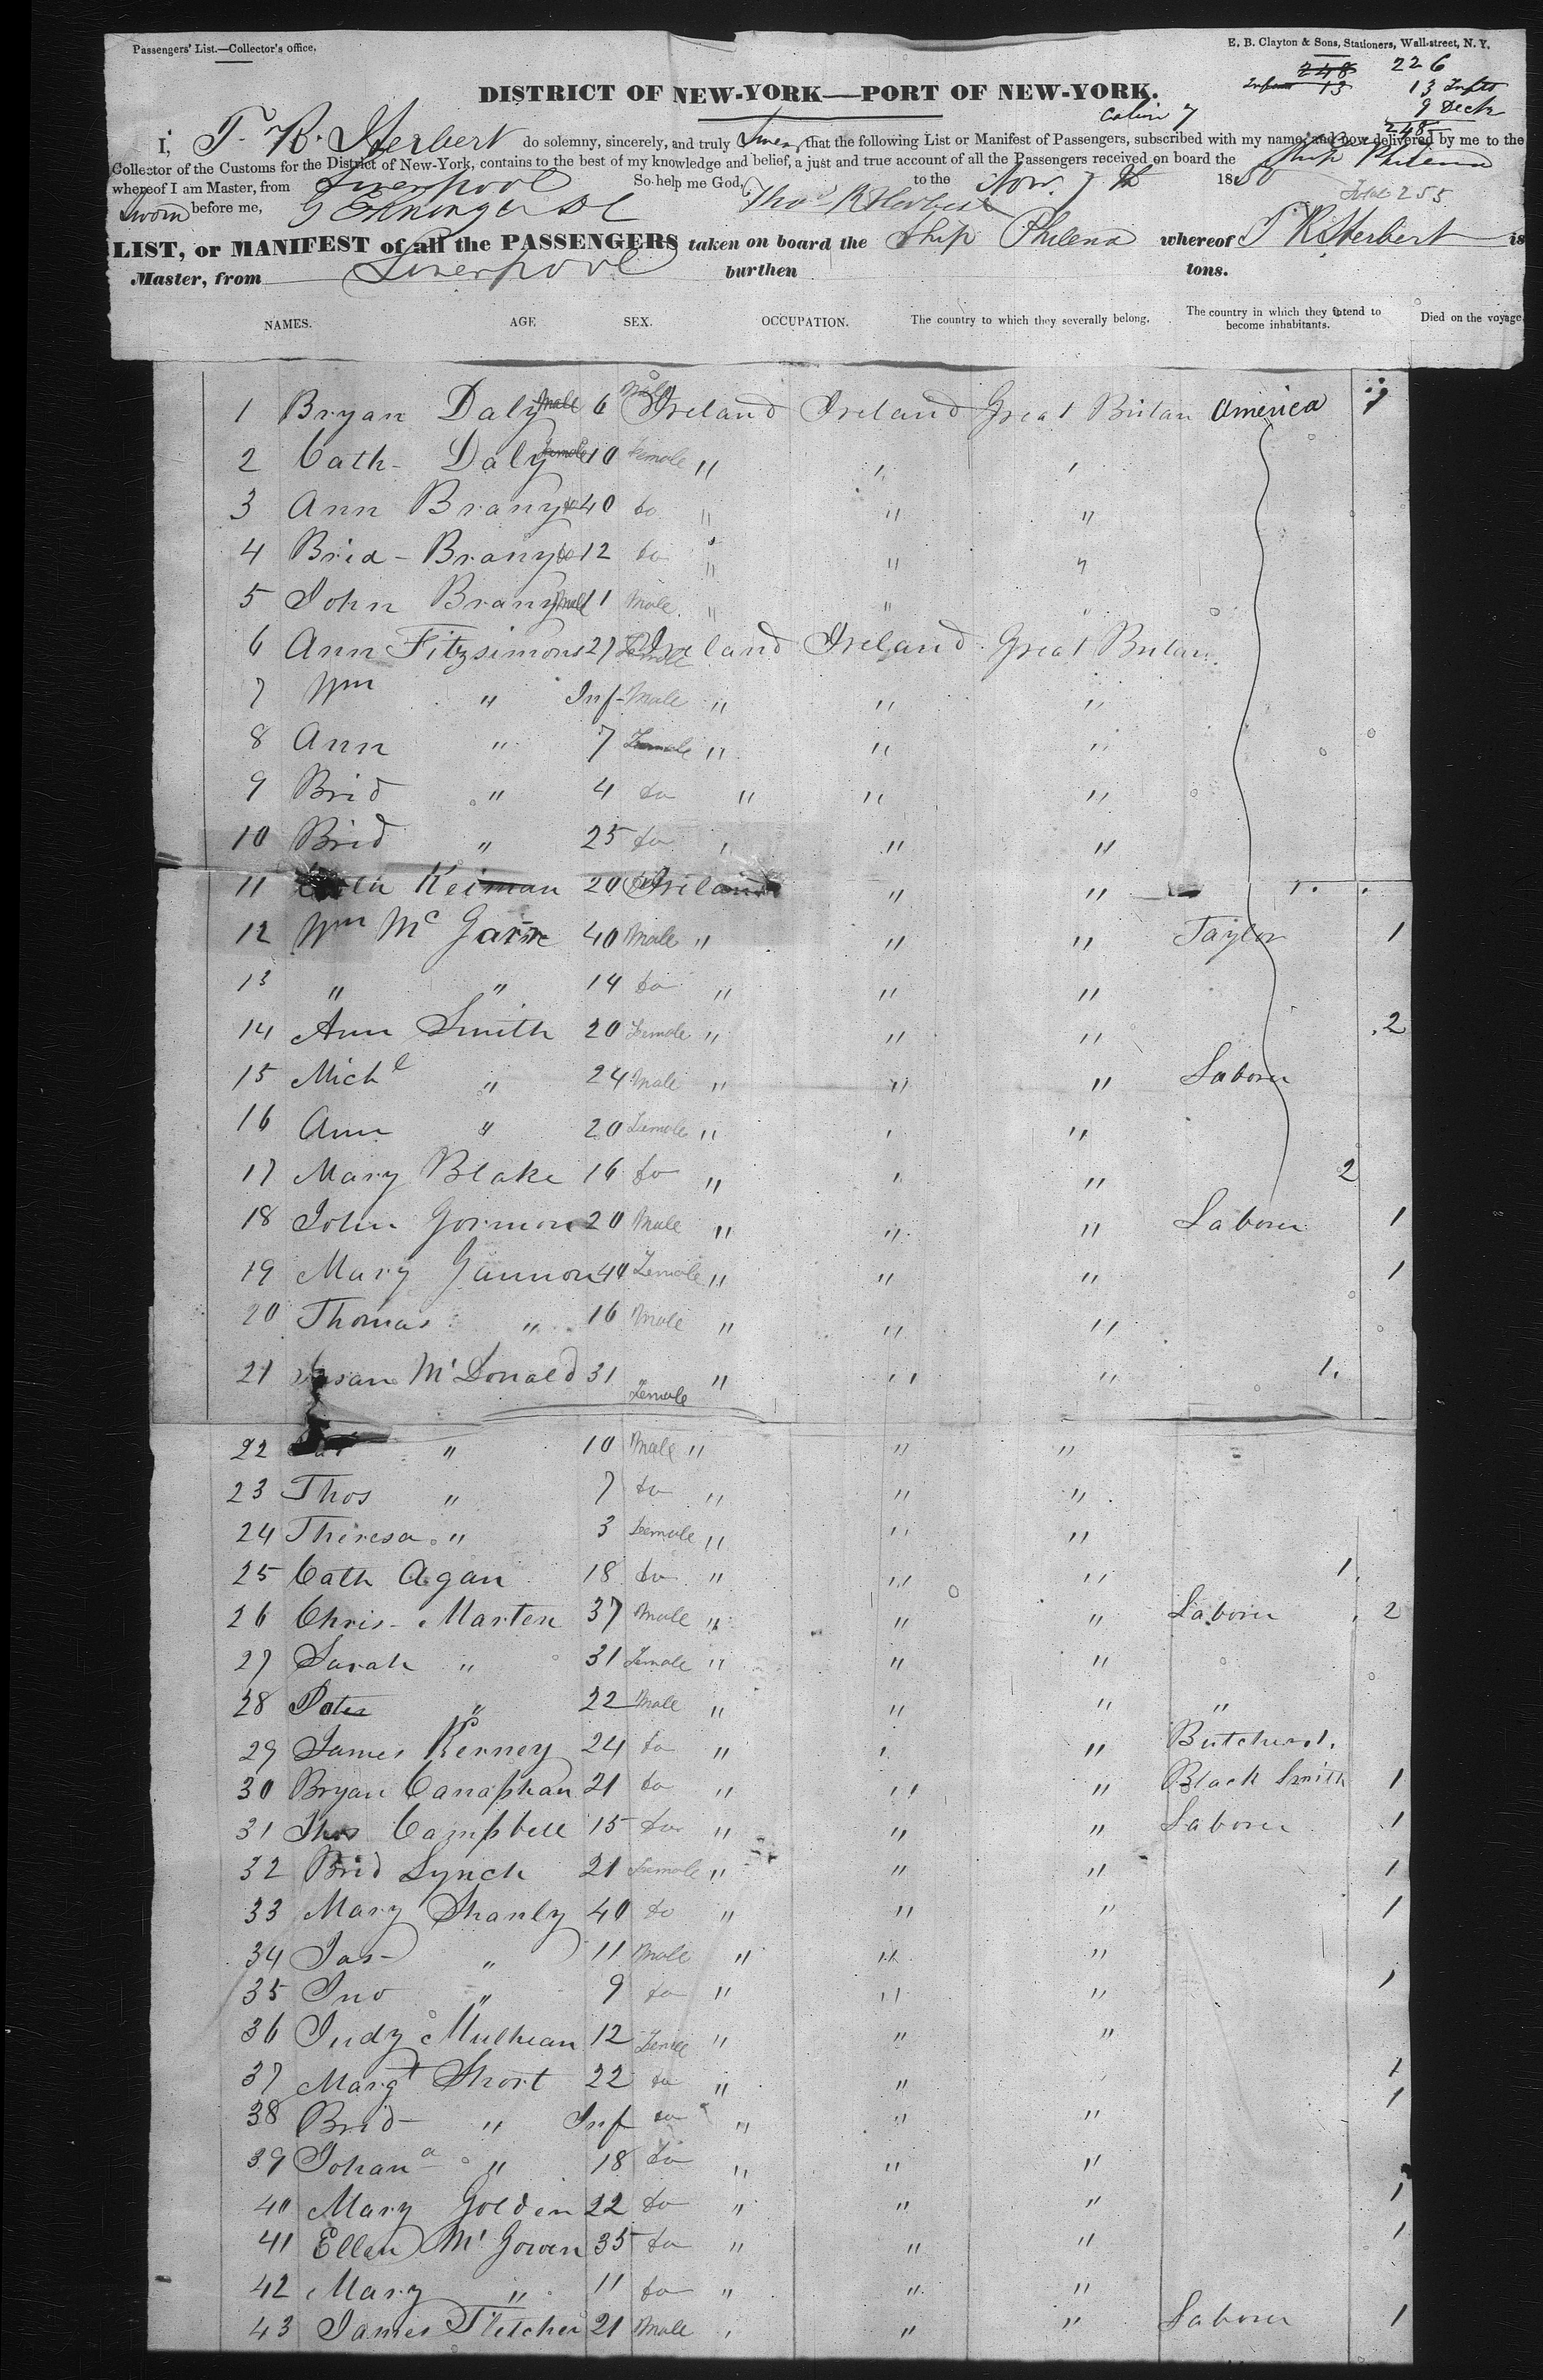 Passengers' List.—Collector's office.
E. B. Clayton & Sons, Stationers, Wall-street, N. Y.
248 226
Infants 13 13 Infts
9 Deck
DISTRICT OF NEW-YORK—PORT OF NEW-YORK.
Cabin 7 248
I, T. R. Herbert do solemny, sincerely, and truly Swear that the following List or Manifest of Passengers, subscribed with my name, and now delivered by me to the
Collector of the Customs for the District of New-York, contains to the best of my knowledge and belief, a just and true account of all the Passengers received on board the Ship Philena
whereof I am Master, from Liverpool So help me God, to the Nov. 7th 1850
Total 255
Sworn before me, Thos R Herbert
LIST, or MANIFEST of all the PASSENGERS taken on board the Ship Philena whereof T R Herbert is
Master, from Liverpool burthen tons.
NAMES. AGE SEX. OCCUPATION. The country to which they severally belong. The country in which they intend to become inhabitants. Died on the voyage.
1 Bryan Daly Male 6 Male Ireland Ireland Great Britan America
2 Cath- Daly Female 10 Female " " "
3 Ann Brany do 40 do " " "
4 Brid - Brany do 12 do " " "
5 John Brany Male 11 Male " " "
6 Ann Fitzsimons 27 Female Ireland Ireland Great Britan
7 Wm " Inf- Male " " "
8 Ann " 7 Female " " "
9 Brid " 4 do " " "
10 Brid " 25 do " " "
11 Keiman 20 Ireland " " 1
12 Wm Mc 40 Male " " " Taylor 1
13 " " 14 do " " "
14 Ann Smith 20 Female " " " 2
15 Michl " 24 Male " " " Laborer
16 Ann " 20 Female " " "
17 Mary Blake 16 do " " " 2
18 John Gormon 20 Male " " " Laborer 1
19 Mary Gannon 40 Female " " " 1
20 Thomas " 16 Male " " "
21 Susan McDonald 31 Female " " " 1
22 " 10 Male " " "
23 Thos " 7 do " " "
24 Theresa " 3 Female " " "
25 Cath Agan 18 do " " " 1
26 Chris- Marten 37 Male " " " Laborer 2
27 Sarah " 31 Female " " "
28 Peter " 22 Male " " " "
29 James Kenney 24 do " " " Butcher 1
30 Bryan Canaphan 21 do " " " Black Smith 1
31 Thos Campbell 15 do " " " Laborer 1
32 Brid Lynch 21 Female " " " 1
33 Mary Shanly 40 do " " " 1
34 Jas- " 11 Male " " "
35 Jno " 9 do " " " 1
36 Judy Mulhean 12 Female " " "
37 Margt Short 22 do " " 1
38 Brid- " Inf do " " " 1
39 Johana " 18 do " " "
40 Mary Golden 22 do " " " 1
41 Ellen Mc Gowen 35 do " " " 1
42 Mary " 11 do " " "
43 James Fletcher 21 Male " " " Laborer 1